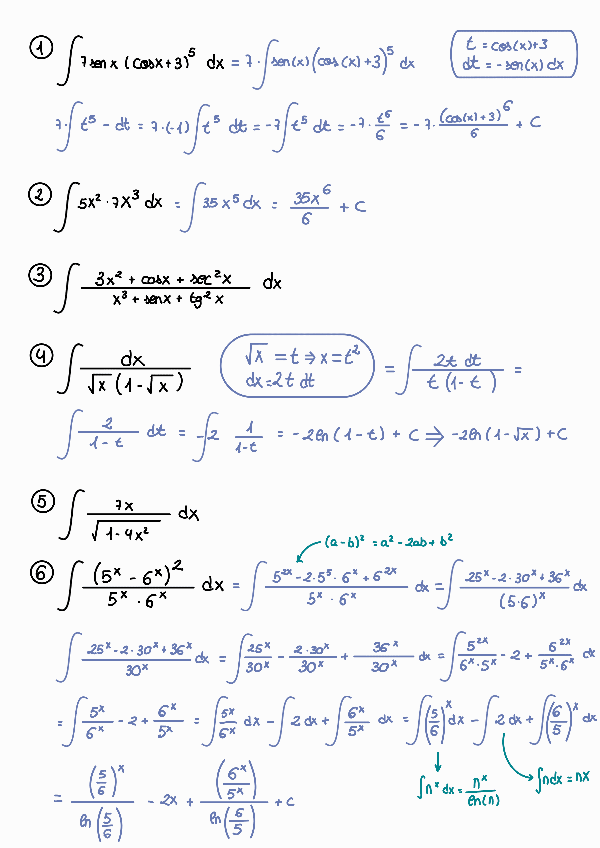 ① ∫ 7 sen x (cos x + 3)^5 dx = 7 · ∫ sen(x) (cos(x) + 3)^5 dx
t = cos(x)+3
dt = - sen(x) dx
7 · ∫ t^5 - dt = 7·(-1) ∫ t^5 dt = -7 ∫ t^5 dt = -7 · t^6/6 = -7 · (cos(x)+3)^6/6 + C
② ∫ 5x² · 7x³ dx = ∫ 35x^5 dx = 35x^6/6 + C
③ ∫ (3x² + cos x + sec² x)/(x³ + sen x + tg² x) dx
④ ∫ dx/(√x (1-√x))
√x = t ⇒ x = t²
dx = 2t dt
= ∫ 2t dt/(t(1-t)) =
∫ 2/(1-t) dt = -∫ 2 1/(1-t) = -2ln(1-t) + C ⇒ -2ln(1-√x) + C
⑤ ∫ 7x/√(1-4x²) dx
(a-b)² = a² - 2ab + b²
⑥ ∫ (5^x - 6^x)²/(5^x · 6^x) dx = ∫ (5^2x - 2·5^5 · 6^x + 6^2x)/(5^x · 6^x) dx = ∫ (25^x - 2·30^x + 36^x)/(5·6)^x dx
∫ (25^x - 2·30^x + 36^x)/30^x dx = ∫ 25^x/30^x - 2·30^x/30^x + 36^x/30^x dx = ∫ 5^2x/(6^x·5^x) - 2 + 6^2x/(5^x·6^x) dx
= ∫ 5^x/6^x - 2 + 6^x/5^x = ∫ 5^x/6^x dx - ∫ 2 dx + ∫ 6^x/5^x dx = ∫ (5/6)^x dx - ∫ 2 dx + ∫ (6/5)^x dx
∫ n^x dx = n^x/ln(n)
∫ n dx = nx
= (5/6)^x/ln(5/6) - 2x + (6^x/5^x)/ln(6/5) + C